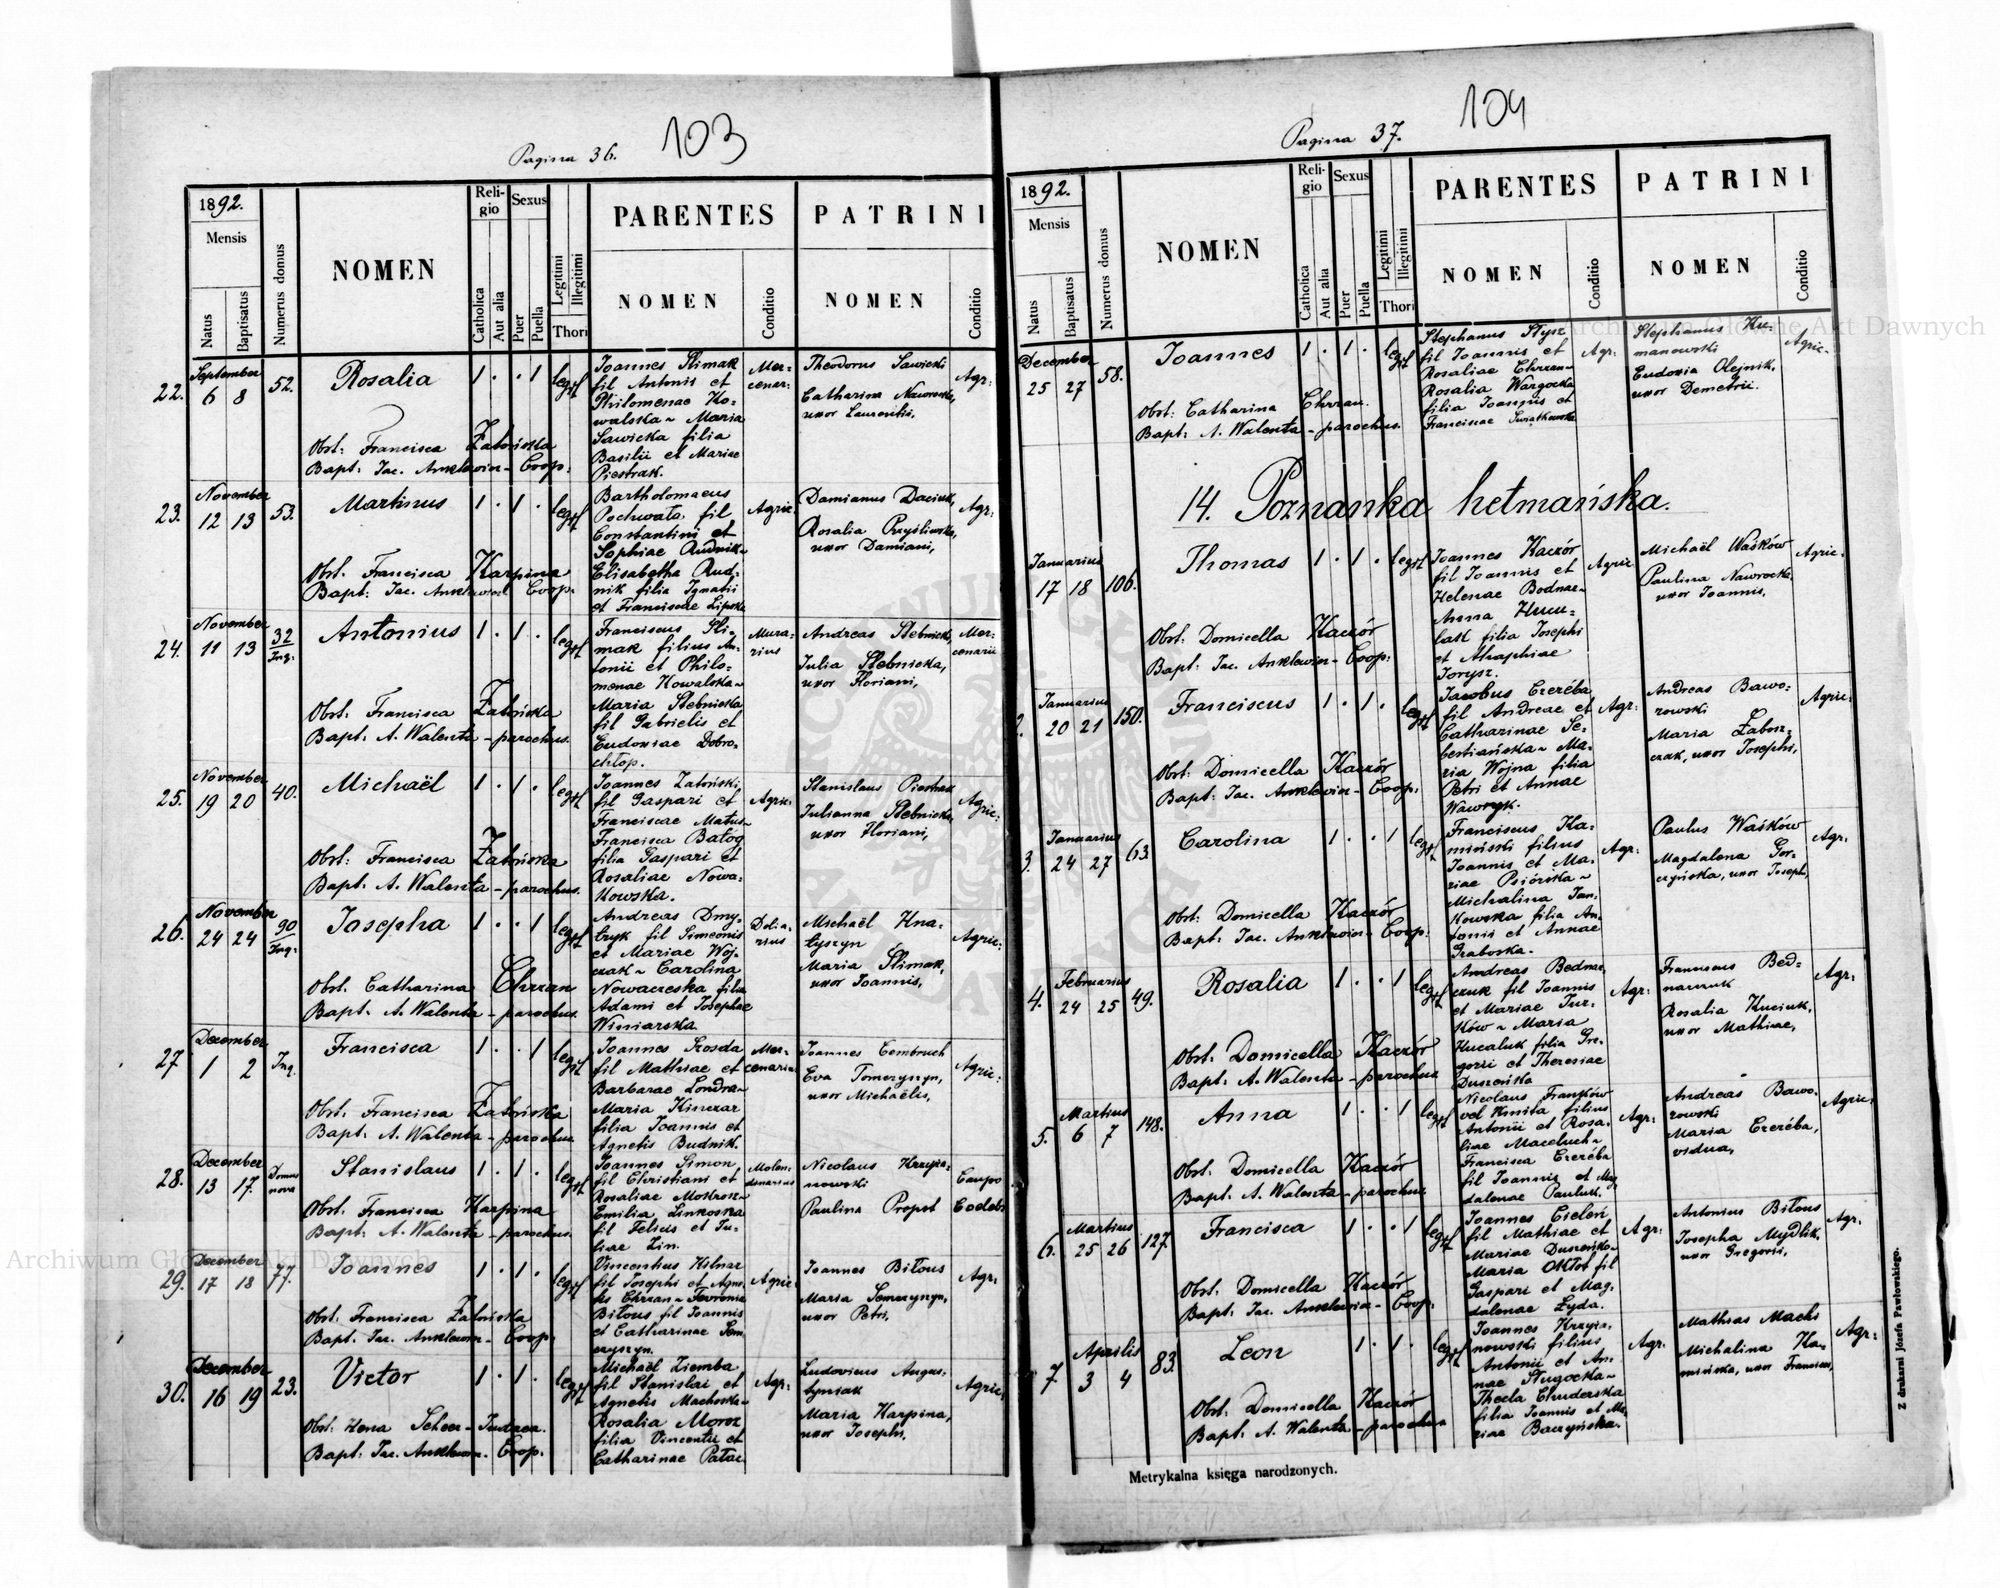 103
Pagina 36.
1892.
Mensis
Natus
Baptisatus
Numerus domus
NOMEN
Religio
Catholica
Aut alia
Sexus
Puer
Puella
Legitimi
Illegitimi
Thori
PARENTES
NOMEN
Conditio
PATRINI
NOMEN
Conditio
22. September 6 8 52. Rosalia 1 . . 1
Obst: Francisca Zatońska
Bapt: Jac. Anklewicz - Coop:
Joannes Slimak
fil Antonii et
Philomenae Ko-
walska ~ Maria
Sawicka filia
Basilii et Mariae
Piestrak.
Mer-
cenar:
Theodorus Sawicki
Catharina Nawrocka,
uxor Laurentii,
Agr:
23. November 12 13 53. Martinus 1 . 1 .
Obst. Francisca Karpina
Bapt: Jac. Anklewicz Coop.
Bartholomaeus
Pochwata fil
Constantini et
Sophiae Rudnik ~
Elisabetha Rud-
nik filia Ignatii
et Franciscae Lipska
Agric:
Damianus Daciuk,
Rosalia Przyśliwska,
uxor Damiani,
Agr:
24. November 11 13 32 Inq: Antonius 1 . 1 .
Obst: Francisca Zatońska
Bapt: A. Walenta - parochus.
Franciscus Sli-
mak filius An-
tonii et Philo-
menae Kowalska ~
Maria Stebnicka
fil Gabrielis et
Eudoxiae Dobro-
chłop.
Mura-
rius
Andreas Stebnicki,
Julia Stebnicka,
uxor Floriani,
Mer-
cenarii
25. November 19 20 40. Michaël 1 . 1 .
Obst: Francisca Zatońska
Bapt: A. Walenta - parochus.
Joannes Zatoński,
fil Gaspari et
Franciscae Matus ~
Francisca Batog
filia Gaspari et
Rosaliae Nowa-
kowska.
Agric:
Stanislaus Piestrak
Julianna Stebnicka,
uxor Floriani,
Agric:
26. November 24 24 90 Inq: Josepha 1 . . 1
Obst. Catharina Chrzan
Bapt: A. Walenta - parochus.
Andreas Dmy-
tryk fil Simeonis
et Mariae Woj-
czak ~ Carolina
Nowaczeska filia
Adami et Josephae
Winiarska
Dolia-
rius
Michaël Hna-
tyszyn
Maria Ślimak,
uxor Joannis,
Agric:
27 December 1 2 Inq. Francisca 1 . . 1
Obst: Francisca Zatońska
Bapt: A. Walenta - parochus
Joannes Szosda
fil Mathiae et
Barbarae Londra ~
Maria Kinczar
filia Joannis et
Agnetis Budnik.
Mer-
cenarius
Joannes Cembruch
Eva Tomczyszyn,
uxor Michaëlis,
Agric:
28. December 13 17. Domus nova Stanislaus 1 . 1 .
Obst. Francisca Karpina
Bapt: A. Walenta - parochus.
Joannes Simon,
fil Christiani et
Rosaliae
Emilia Linkoska
fil Felicis et Ju-
liae Lin.
Molen-
dinarius
Nicolaus Krzyża-
nowski
Paulina Propst
Caupo
Coelebs
29. December 17 18 77. Joannes 1 . 1 .
Obst. Francisca Zatońska
Bapt: Jac. Anklewicz - Coop:
Vincentius Kilnar
fil Josephi et Agne-
tis Chrzan ~ Fevronia
Biłous fil Joannis
et Catharinae Sem
czyszyn.
Agric:
Joannes Biłous
Maria Semczyszyn,
uxor Petri,
Agr:
30. December 16 19 23. Victor 1 . 1 .
Obst: Hena Scheer - Judaea.
Bapt: Jac. Anklewicz - Coop.
Michaël Ziemba,
fil Stanislai et
Agnetis Machoska ~
Rosalia Moroz
filia Vincentii et
Catharinae Pałac.
Agr:
Ludovicus Augus-
tyniak
Maria Karpina,
uxor Josephi,
Agric:
104
Pagina 37.
1892.
Mensis
Natus
Baptisatus
Numerus domus
NOMEN
Religio
Catholica
Aut alia
Sexus
Puer
Puella
Legitimi
Illegitimi
Thori
PARENTES
NOMEN
Conditio
PATRINI
NOMEN
Conditio
December 25 27 58. Joannes 1 . 1 .
Obst: Catharina Chrzan.
Bapt: A. Walenta - parochus.
Stephanus Stysz
fil Joannis et
Rosaliae Chrzan ~
Rosalia Wargocka
filia Joannis et
Franciscae Swiatkowska
Agr:
Stephanus Hu-
manowski
Eudoxia Olejnik,
uxor Demetrii.
Agric-
14. Poznanka hetmańska.
Januarius 17 18 106. Thomas 1 . 1 .
Obst: Domicella Kaczór
Bapt: Jac. Anklewicz - Coop:
Joannes Kaczór
fil Joannis et
Helenae Bodnar ~
Anna Hucu-
lak filia Josephi
et Ahaphiae
Torysz.
Agric
Michaël Waśków
Paulina Nawrocka,
uxor Joannis,
Agric-
2. Januarius 20 21 150. Franciscus 1 . 1 .
Obst: Domicella Kaczór
Bapt: Jac. Anklewicz - Coop:
Jacobus Czeréba,
fil Andreae et
Catharinae Se-
bestiańska ~ Ma-
ria Wojna filia
Petri et Annae
Wawryk.
Agr:
Andreas Bawo-
rowski
Maria Żabor-
czak, uxor Josephi,
Agric:
3. Januarius 24 27 63. Carolina 1 . . 1
Obst: Domicella Kaczór
Bapt: Jac. Anklewicz - Coop.
Franciscus Ka-
miński filius
Joannis et Ma-
riae Psiórska ~
Michalina Jan-
kowska filia An-
tonii et Annae
Graboska.
Agr:
Paulus Waśków
Magdalena Gor-
czyńska, uxor Josephi,
Agr:
4. Februarius 24 25 49. Rosalia 1 . . 1
Obst: Domicella Kaczór
Bapt: A. Walenta - parochus
Andreas Bednar-
czuk fil Joannis
et Mariae Tur-
ków ~ Maria
Hucaluk filia Gre-
gorii et Theresiae
Duszeńska
Agr:
Franciscus Bed-
narczuk
Rosalia Kuciuk,
uxor Mathiae,
Agr:
5. Martius 6 7 148. Anna 1 . . 1
Obst. Domicella Kaczór
Bapt: A. Walenta - parochus
Nicolaus Franków
vel Kmita, filius
Antonii et Rosa-
liae Maceluch ~
Francisca Czeréba
fil Joannis et Mag
dalenae Pauluk.
Agr:
Andreas Bawo-
rowski
Maria Czeréba,
vidua,
Agric:
6. Martius 25 26 127. Francisca 1 . . 1
Obst: Domicella Kaczór
Bapt: Jac. Anklewicz - Coop.
Joannes Cielen
fil Mathiae et
Mariae Duszeńko ~
Maria Okłot fil
Gaspari et Mag-
dalenae Łyda.
Agr:
Antonius Biłous
Josepha Mydlik,
uxor Gregorii,
Agr.
7 Aprilis 3 4 83. Leon 1 . 1 .
Obst. Domicella Kaczór
Bapt: A. Walenta - parochus
Joannes Krzyża-
nowski filius
Antonii et An-
nae Sługocka ~
Thecla Chuderska
filia Joannis et Ma
riae Baczyńska.
Agr:
Mathias Machs
Michalina Ka-
mińska, uxor Francisci,
Agr:
Metrykalna księga narodzonych.
Z drukarni Józefa Pawłowskiego.
Archiwum Główne Akt Dawnych
Archiwum Główne Akt Dawnych